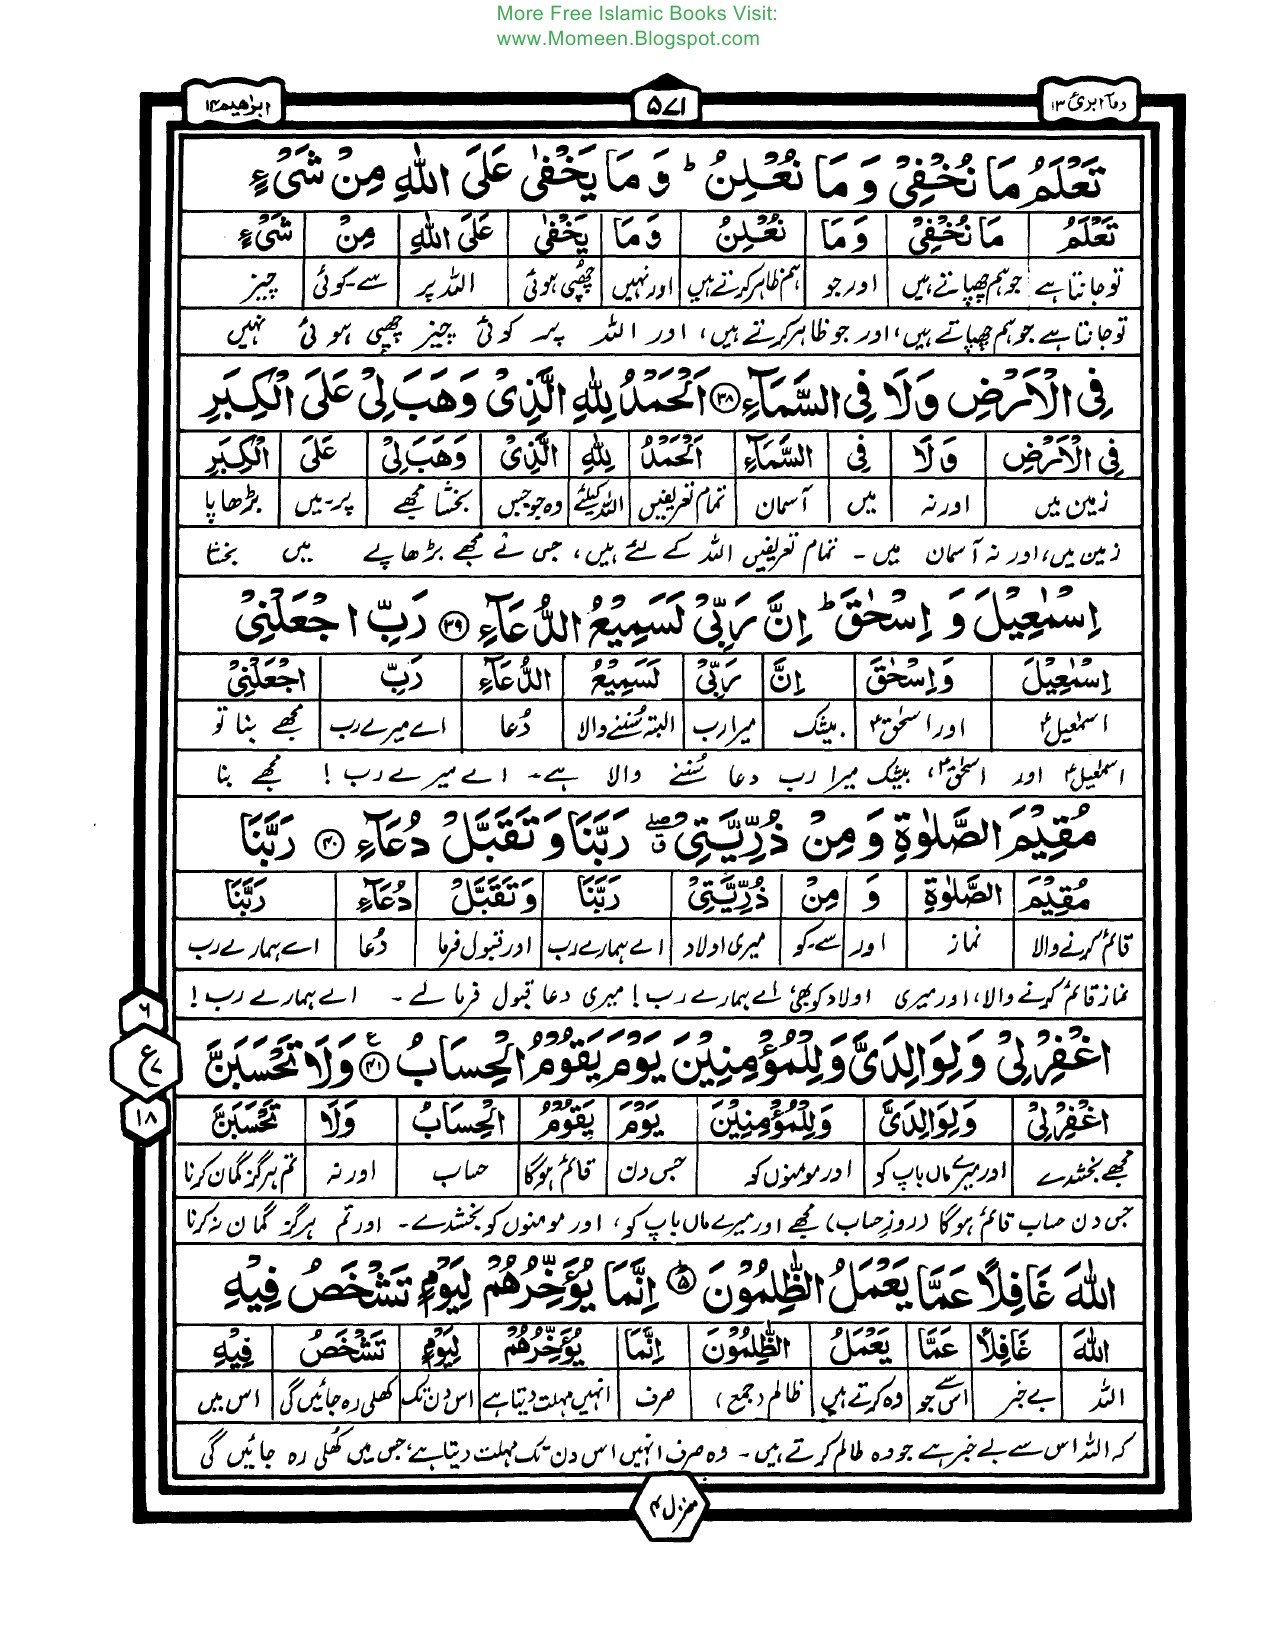 More Free Islamic Books Visit:
www.Momeen.Blogspot.com
وما ابرئ ۱۳
۵۷۱
ابراهیم ۱۴
تَعْلَمُ مَا نُخْفِیْ وَ مَا نُعْلِنُ ؕ وَ مَا یَخْفٰی عَلَی اللّٰهِ مِنْ شَیْءٍ
تَعْلَمُ مَا نُخْفِیْ وَ مَا نُعْلِنُ وَ مَا یَخْفٰی عَلَی اللّٰهِ مِنْ شَیْءٍ
تو جانتا ہے جو ہم چھپاتے ہیں اور جو ہم ظاہر کرتے ہیں اور نہیں چھپی ہوئی اللہ پر سے۔کوئی چیز
تو جانتا ہے جو ہم چھپاتے ہیں، اور جو ظاہر کرتے ہیں، اور اللہ پر کوئی چیز چھپی ہوئی نہیں
فِی الْاَرْضِ وَلَا فِی السَّمَآءِ ۳۸ اَلْحَمْدُ لِلّٰهِ الَّذِیْ وَهَبَ لِیْ عَلَی الْکِبَرِ
فِی الْاَرْضِ وَلَا فِی السَّمَآءِ اَلْحَمْدُ لِلّٰهِ الَّذِیْ وَهَبَ لِیْ عَلَی الْکِبَرِ
زمین میں اور نہ میں آسمان تمام تعریفیں اللہ کیلئے وہ جو جس بخشا مجھے پر۔میں بڑھاپا
زمین میں، اور نہ آسمان میں ۔ تمام تعریفیں اللہ کے لئے ہیں، جس نے مجھے بڑھاپے میں بخشا
اِسْمٰعِیْلَ وَ اِسْحٰقَ ؕ اِنَّ رَبِّیْ لَسَمِیْعُ الدُّعَآءِ ۳۹ رَبِّ اجْعَلْنِیْ
اِسْمٰعِیْلَ وَ اِسْحٰقَ اِنَّ رَبِّیْ لَسَمِیْعُ الدُّعَآءِ رَبِّ اجْعَلْنِیْ
اسمٰعیلؑ اور اسحٰقؑ بیشک میرا رب البتہ سُننے والا دُعا اے میرے رب مجھے بنا تو
اسمٰعیلؑ اور اسحٰقؑ، بیشک میرا رب دعا سُننے والا ہے۔ اے میرے رب! مجھے بنا
مُقِیْمَ الصَّلٰوةِ وَ مِنْ ذُرِّیَّتِیْ ۖۗ رَبَّنَا وَ تَقَبَّلْ دُعَآءِ ۴۰ رَبَّنَا
مُقِیْمَ الصَّلٰوةِ وَ مِنْ ذُرِّیَّتِیْ رَبَّنَا وَ تَقَبَّلْ دُعَآءِ رَبَّنَا
قائم کرنے والا نماز اور سے۔کو میری اولاد اے ہمارے رب اور قبول فرما دُعا اے ہمارے رب
نماز قائم کرنے والا، اور میری اولاد کو بھی اے ہمارے رب! میری دعا قبول فرما لے ۔ اے ہمارے رب!
اغْفِرْ لِیْ وَ لِوَالِدَیَّ وَ لِلْمُؤْمِنِیْنَ یَوْمَ یَقُوْمُ الْحِسَابُ ۴۱ ع وَلَا تَحْسَبَنَّ
اغْفِرْ لِیْ وَ لِوَالِدَیَّ وَ لِلْمُؤْمِنِیْنَ یَوْمَ یَقُوْمُ الْحِسَابُ وَلَا تَحْسَبَنَّ
مجھے بخشدے اور میرے ماں باپ کو اور مومنوں کو جس دن قائم ہوگا حساب اور نہ تم ہرگز گمان کرنا
جس دن حساب قائم ہوگا (روزِ حساب) مجھے اور میرے ماں باپ کو، اور مومنوں کو بخشدے۔ اور تم ہرگز گمان نہ کرنا
اللّٰهَ غَافِلًا عَمَّا یَعْمَلُ الظّٰلِمُوْنَ ؕ۵ اِنَّمَا یُؤَخِّرُهُمْ لِیَوْمٍ تَشْخَصُ فِیْهِ
اللّٰهَ غَافِلًا عَمَّا یَعْمَلُ الظّٰلِمُوْنَ اِنَّمَا یُؤَخِّرُهُمْ لِیَوْمٍ تَشْخَصُ فِیْهِ
اللہ بے خبر اس سے جو وہ کرتے ہیں ظالم (جمع) صرف انہیں مہلت دیتا ہے اس دن تک کھلی رہ جائیں گی اس میں
کہ اللہ اس سے بے خبر ہے جو وہ ظالم کرتے ہیں ۔ وہ صرف انہیں اس دن تک مہلت دیتا ہے، جس میں کُھلی رہ جائیں گی
۶
ع
۷
۱۸
منزل ۳